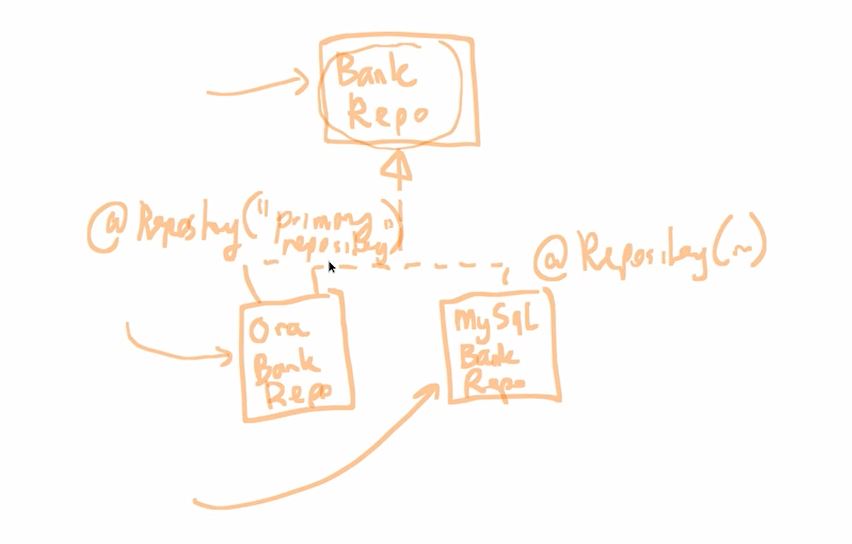 Bank
Repo
@Repository("primary
repository")
@Repository(~)
Ora
Bank
Repo
MySqL
Bank
Repo